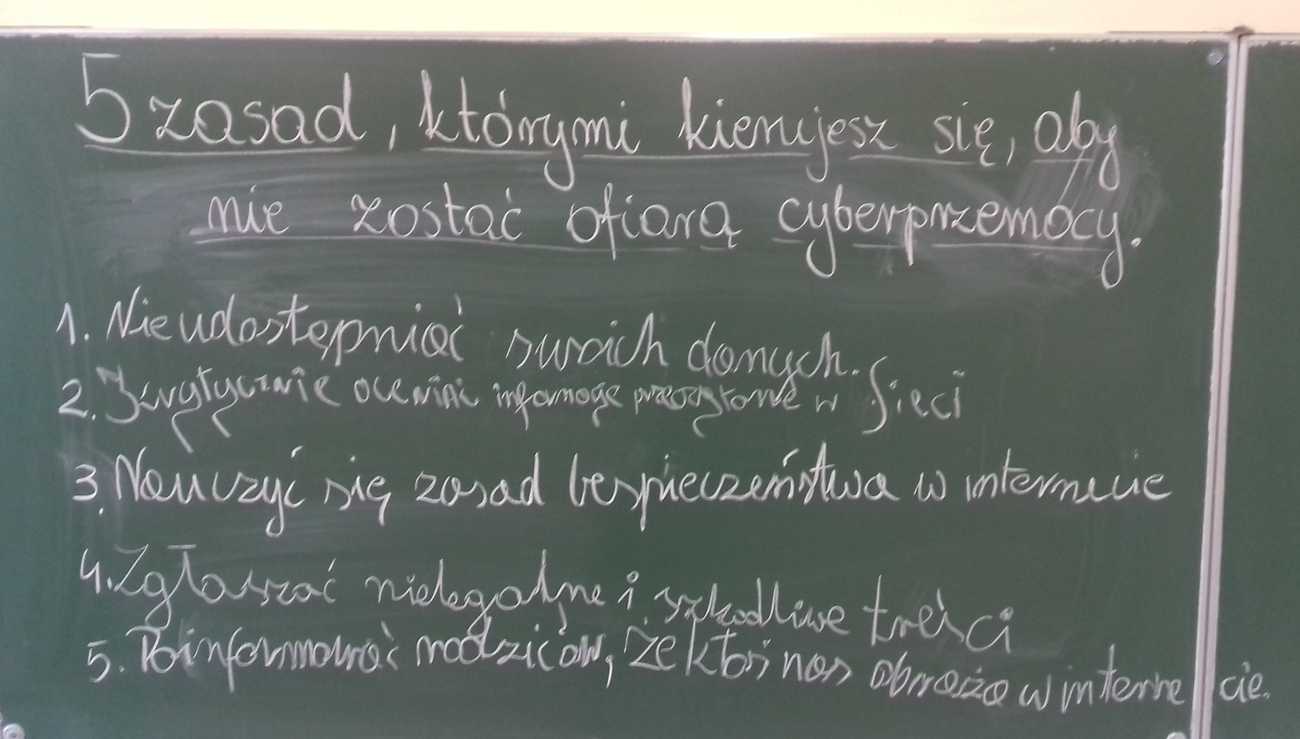 5 zasad, którymi kierujesz się, aby
nie zostać ofiarą cyberprzemocy.
1. Nie udostępniać swoich danych.
2. Krytycznie oceniać informacje przeczytane w sieci
3. Nauczyć się zasad bezpieczeństwa w internecie
4. Zgłaszać nielegalne i szkodliwe treści
5. Poinformować rodziców, że ktoś nas obraża w internecie.